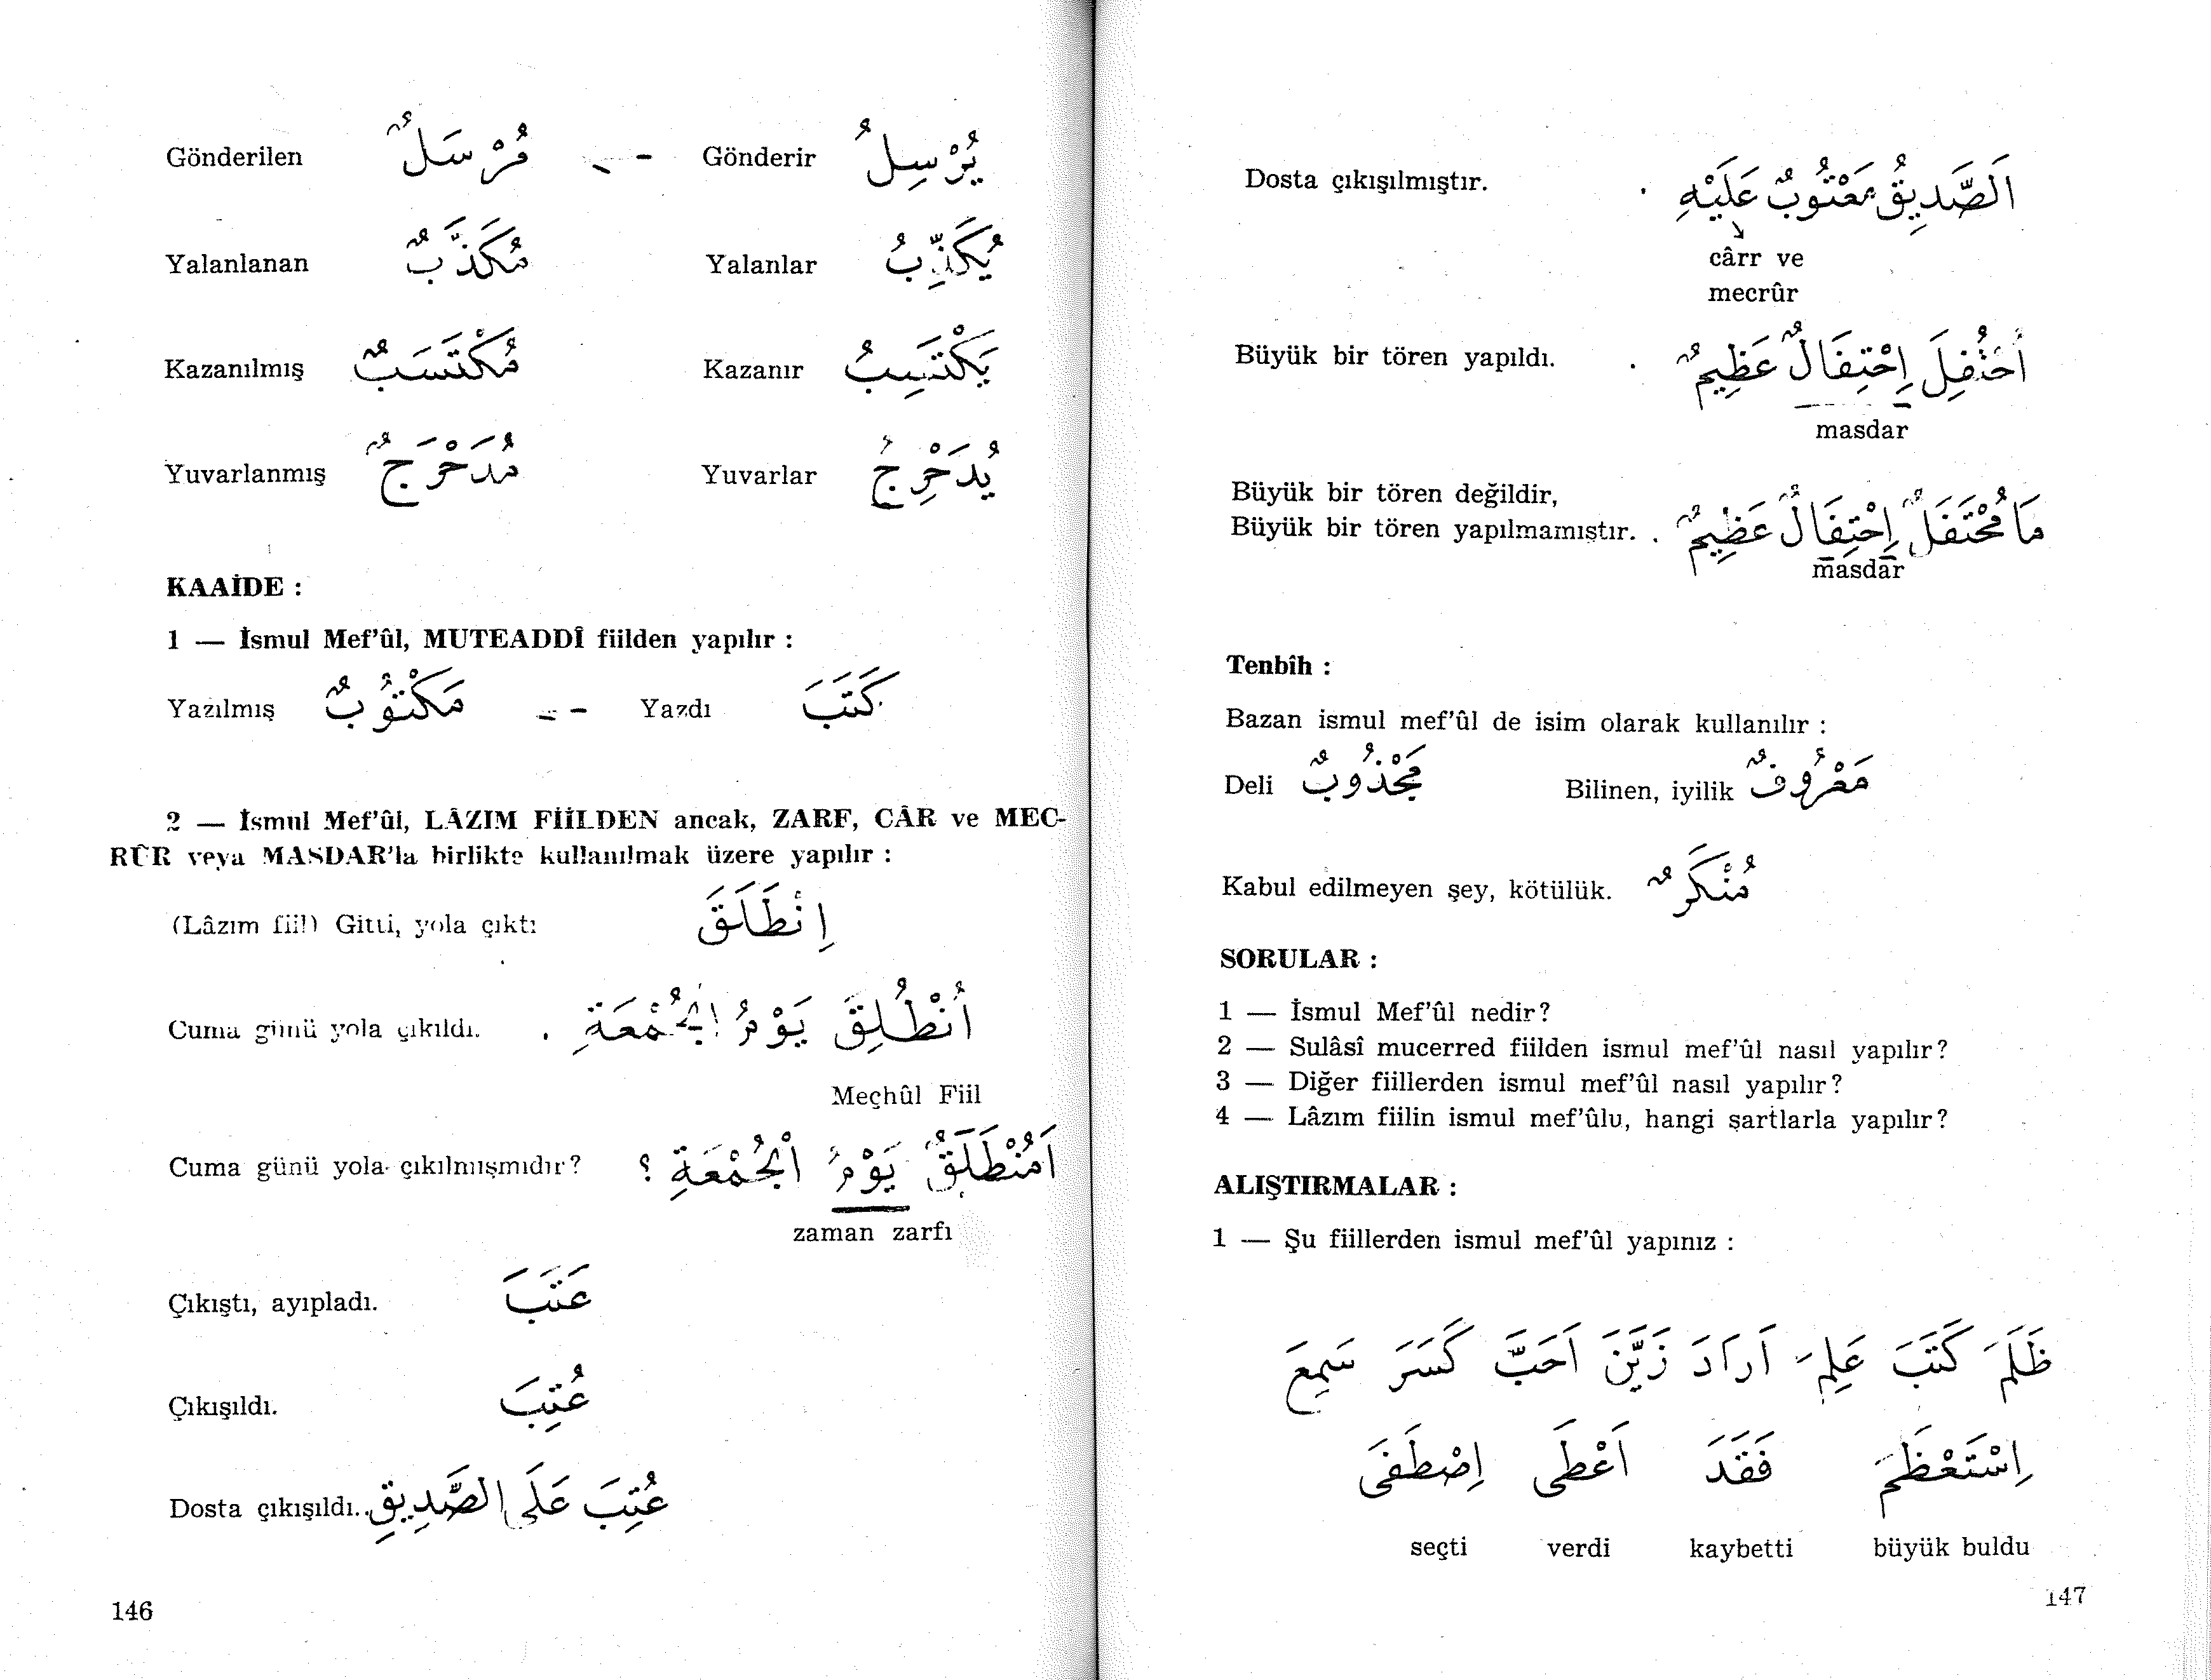 Gönderilen مُرْسَلٌ - - Gönderir يُرْسِلُ
Yalanlanan مُكَذَّبٌ Yalanlar يُكَذِّبُ
Kazanılmış مُكْتَسَبٌ Kazanır يَكْتَسِبُ
Yuvarlanmış مُدَحْرَجٌ Yuvarlar يُدَحْرِجُ
KAAİDE :
1 — İsmul Mef'ûl, MUTEADDÎ fiilden yapılır :
Yazılmış مَكْتُوبٌ - - Yazdı كَتَبَ
2 — İsmul Mef'ûl, LÂZIM FİİLDEN ancak, ZARF, CÂR ve MEC-
RÛR veya MASDAR'la birlikte kullanılmak üzere yapılır :
(Lâzım fiil) Gitti, yola çıktı اِنْطَلَقَ
Cuma günü yola çıkıldı. اُنْطُلِقَ يَوْمُ الْجُمْعَةِ .
Meçhûl Fiil
Cuma günü yola çıkılmışmıdır? اَمُنْطَلَقٌ يَوْمُ الْجُمْعَةِ ؟
zaman zarfı
Çıkıştı, ayıpladı. عَتَبَ
Çıkışıldı. عُتِبَ
Dosta çıkışıldı. عُتِبَ عَلَى الصَّدِيقِ .
146
Dosta çıkışılmıştır. اَلصَّدِيقُ مَعْتُوبٌ عَلَيْهِ .
cârr ve
mecrûr
Büyük bir tören yapıldı. اُحْتُفِلَ اِحْتِفَالٌ عَظِيمٌ .
masdar
Büyük bir tören değildir,
Büyük bir tören yapılmamıştır. مَا مُحْتَفَلٌ اِحْتِفَالٌ عَظِيمٌ .
masdar
Tenbîh :
Bazan ismul mef'ûl de isim olarak kullanılır :
Deli مَجْذُوبٌ Bilinen, iyilik مَعْرُوفٌ
Kabul edilmeyen şey, kötülük. مُنْكَرٌ
SORULAR :
1 — İsmul Mef'ûl nedir?
2 — Sulâsî mucerred fiilden ismul mef'ûl nasıl yapılır?
3 — Diğer fiillerden ismul mef'ûl nasıl yapılır?
4 — Lâzım fiilin ismul mef'ûlu, hangi şartlarla yapılır?
ALIŞTIRMALAR :
1 — Şu fiillerden ismul mef'ûl yapınız :
ظَلَمَ كَتَبَ عَلِمَ اَرَادَ زَيَّنَ اَحَبَّ كَسَرَ سَمِعَ
اِسْتَعْظَمَ فَقَدَ اَعْطَى اِصْطَفَى
seçti verdi kaybetti büyük buldu
147